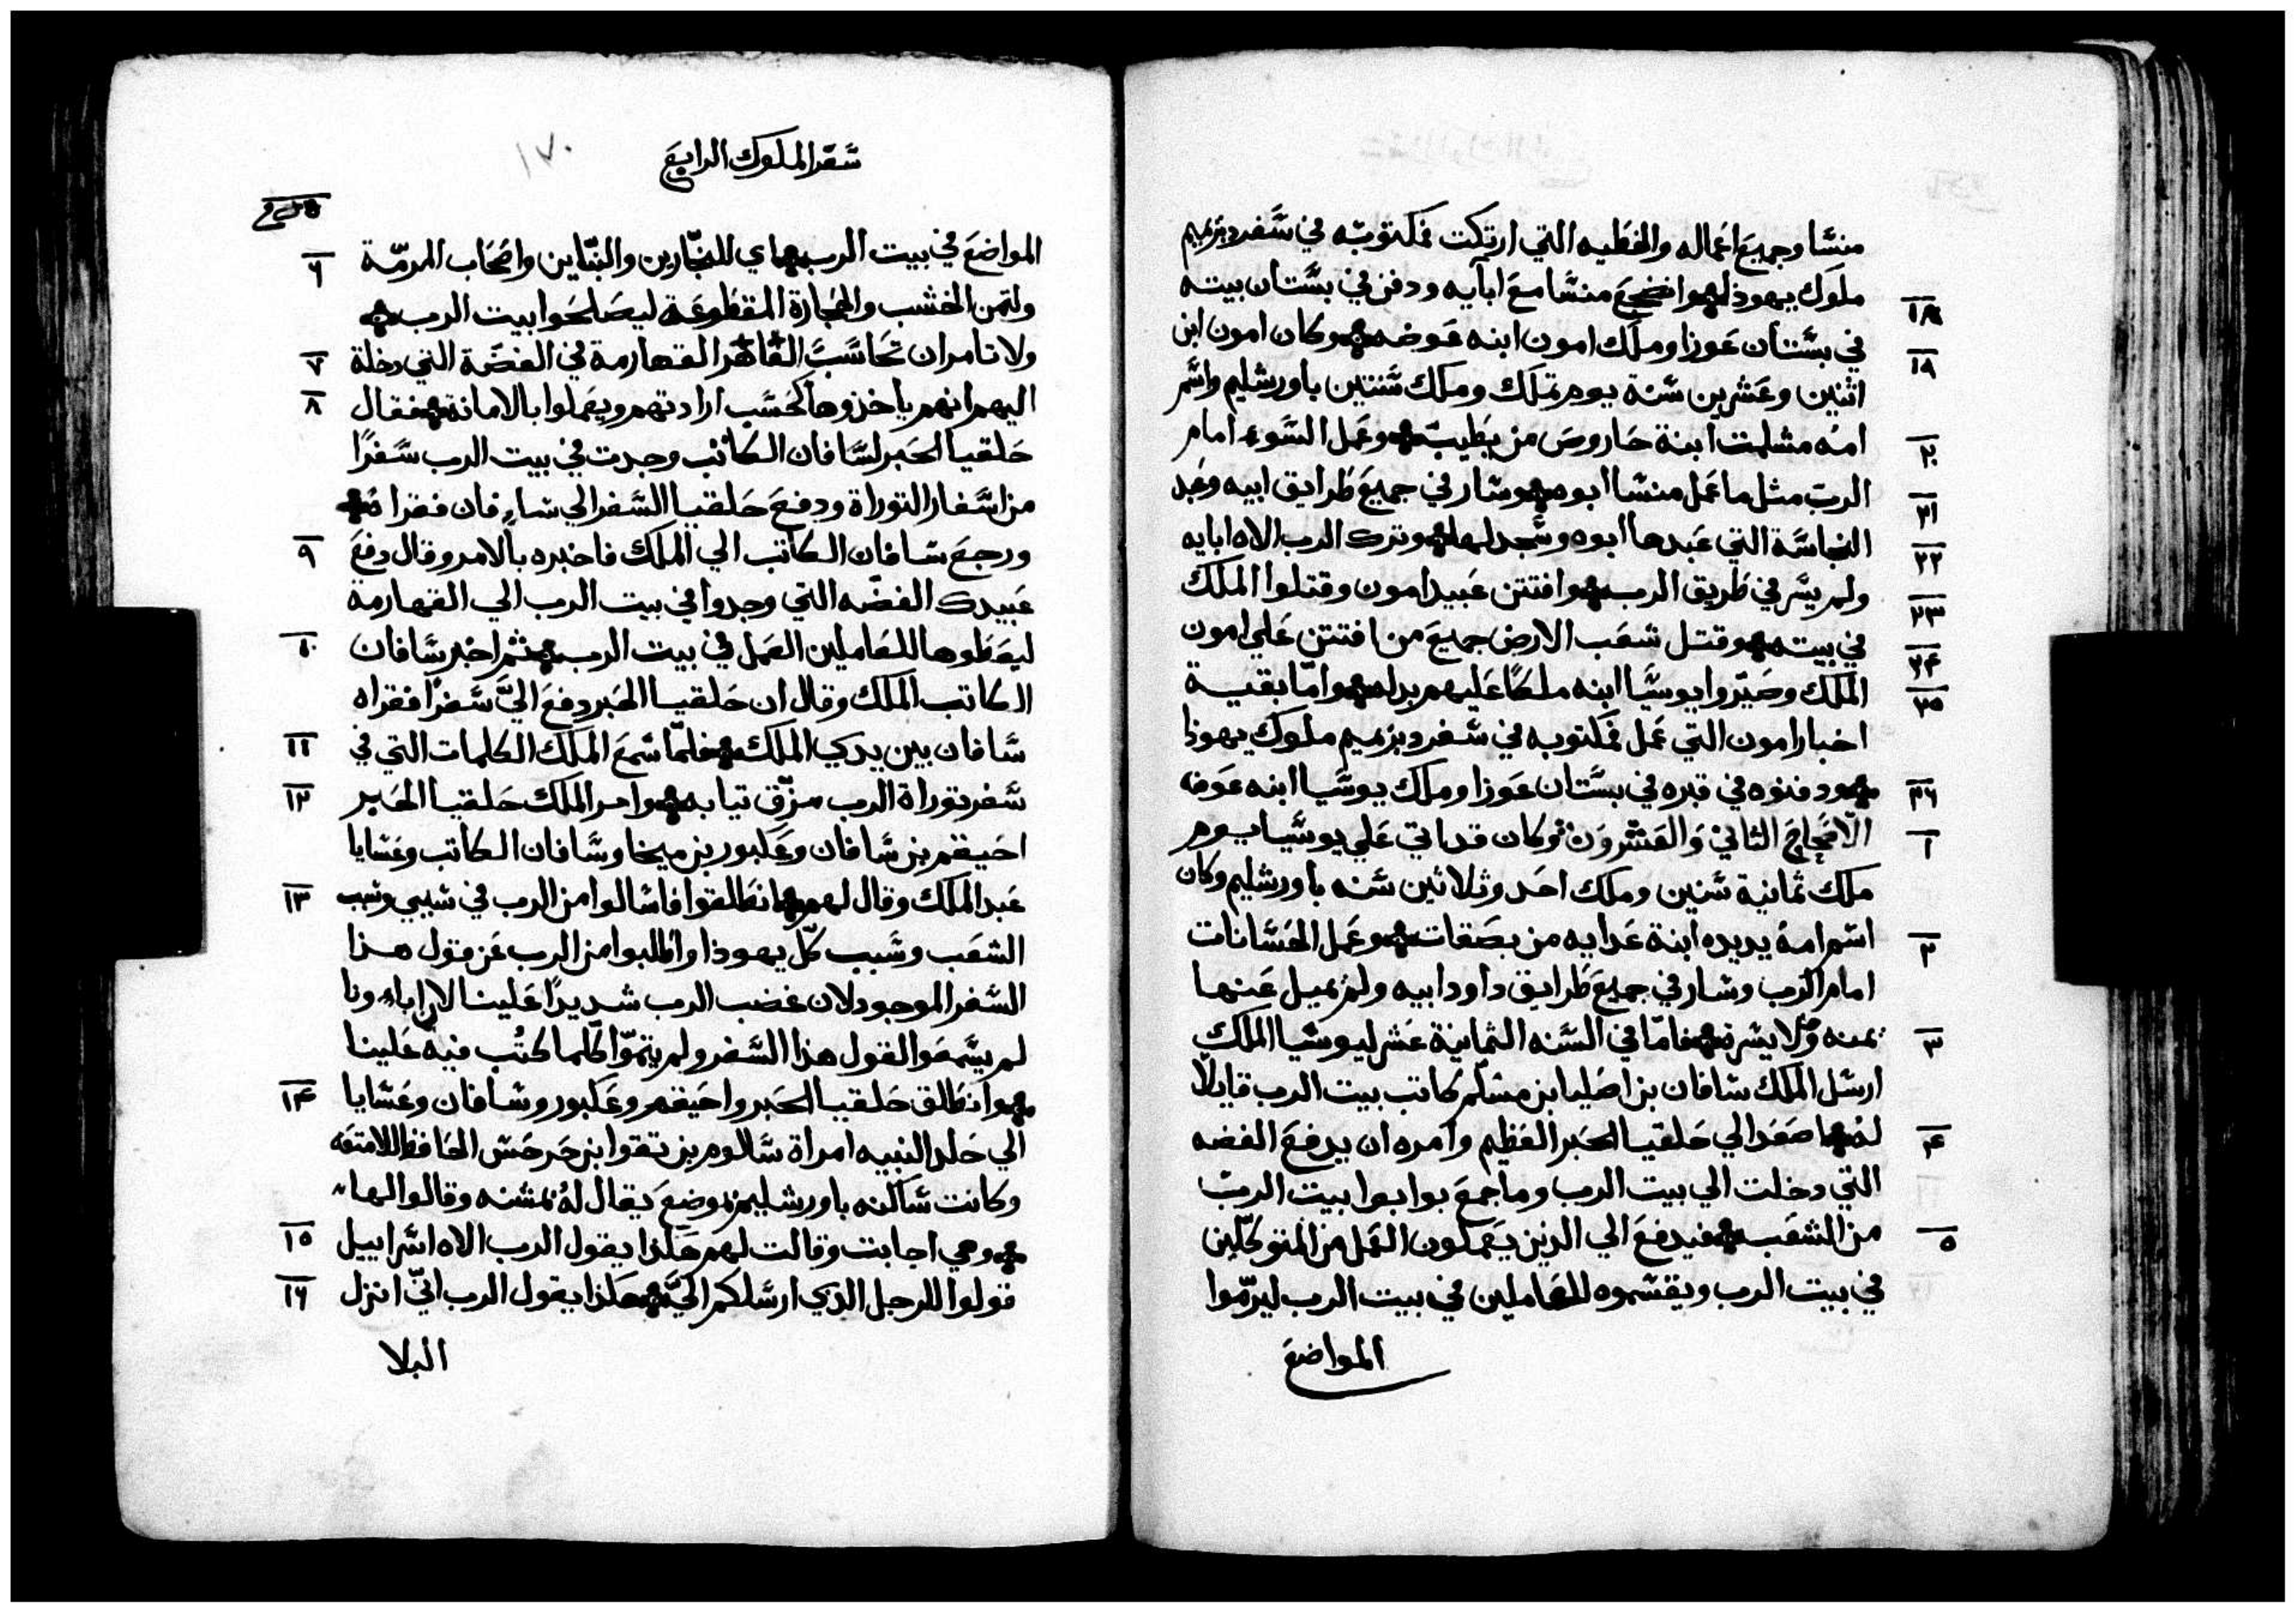 منسَّا وجميع اعماله والخطيه التي ارتكت فمكتوبه في سَفر دبزيميم
١٨ ملوك يهوذا واضجع منسَّا مع ابآيه ودفن في بسَّتان بيته
١٩ في بسَّتان عَوزا وملك امون ابنه عَوضه وكان امون ابن
اثنين وعَشرين سَنة يوم تملك وملك سَنتين باورشليم واسَّم
٢٠ امه مشلمت ابنة حاروص من يطيبَ وعَمل السَّوء امام
٢١ الربّ مثل ما عَمل منسَّا ابوه وسَار في جميعَ طرايق ابيه وعَبد
٢٢ النجاسَّة التي عَبدها ابوه وسَّجد لها وترك الرب الاه ابايه
٢٣ ولم يسَّر في طريق الرب وافتتن عَبيد امون وقتلوا الملك
٢٤ في بيته وقتل شعَب الارض جميعَ من افتتن عَلي امون
٢٥ الملك وصَيّروا يوسَّيا ابنه ملكًا عَليهم بدله وامّا بقية
اخبار امون التي عَمل فمكتوبه في سَفر دبزيميم ملوك يهوذا
٢٦ ودفنوه في قبره في بسَّتان عَوزا وملك يوسَّيا ابنه عَوضه
١ الاصَّحاح الثاني وَالعَشرون وكان قد اتي عَلي يوسَّيا يوم
ملك ثمانية سَّنين وملك احَد وثلاثين سَّنه باورشليم وكان
٢ اسَّم امهُ يديده ابنة عَدايه من بصَقات وعَمل الحسَّانات
امام الرب وسَار في جميع طرايق داود ابيه ولم يميل عَنها
٣ يمنه ولا يسَّره فامّا في السَّنه الثمانية عَشر ليوسَّيا الملك
ارسَّل الملك سَافان بن اصَليا ابن مشلّم كاتب بيت الرب قايلاً
٤ لهُ اصَعَد الي حَلقيا الحَبر العَظيم وامره ان يدفعَ الفضه
التي دخلت الي بيت الرب وما جمعَ بوابوا بيت الربّ
٥ من الشعَب فيدفعَ الي الذين يعَملون العَمل من المتوكلّين
في بيت الرب ويقسَّموه للعَاملين في بيت الرب ليرمّوا
المواضعَ
١٧٠
سَّفر الملوك الرابعَ
المواضعَ في بيت الرب اي للنجّارين والبنّاين واصَحَاب المرمّة
٦ ولثمن الخشب والحجارة المقطوعَة ليصَلحَوا بيت الرب
٧ ولا تامر ان تحَاسَبَ القهارمة في الفضّة التي دخلة
٨ اليهم انهم ياخذوها كحسَّب ارادتهم ويعَملوا بالامانة فقال
حَلقيا الحَبر لسَّافان الكاتب وجدت في بيت الرب سَّفرًا
من اسَّفار التوراة ودفعَ حَلقيا السَّفر الي شافان فقراهُ
٩ ورجعَ سَافان الكاتب الي الملك فاخبره بالامر وقال دفعَ
عَبيدك الفضّه التي وجدوا في بيت الرب الي القهارمة
١٠ ليعَطوها للعَاملين العَمل في بيت الرب ثم اخبر سَّافان
الكاتب الملك وقال ان حَلقيا الحَبر دفعَ اليَّ سَّفرًا فقراه
١١ سَّافان بين يدي الملك فلمّا سَّمعَ الملك الكلمات التي في
١٢ سَّفر توراة الرب مزّق تيابه وامر الملك حَلقيا الحَبر
احَيقم بن سَّافان وعَكبور بن ميخا وسَّافان الكاتب وعَسَايا
١٣ عَبد الملك وقال لهم انطلقوا فاسَّالوا من الرب في سَّببي وسَّبب
الشعَب وسَّبب كلّ يهوذا واطلبوا من الرب عَن قول هذا
السَّفر الموجود لان غضب الرب شديدًا عَلينا لان ابآونا
لم يسَّمعَوا القول هذا السَّفر ولم يتمّوا كلّما كتُب فيه عَلينا
١٤ وانطلق حَلقيا الحَبر واحَيقم وعَكبور وشافان وعَسَّايا
الي حَلد النبيه امراة سَّالوم بن تقوا ابن حَرحَسَ الحَافظ للامتعَه
وكانت سَّاكنه باورشليم بموضعَ يقال لهُ مشنه وقالوا لها
١٥ وهي اجابت وقالت لهم هَكذا يقول الرب الاه اسَّراييل
١٦ قولوا للرجل الذي ارسَّلكم اليَّ هَكذا يقول الرب انّي انزل
البلا